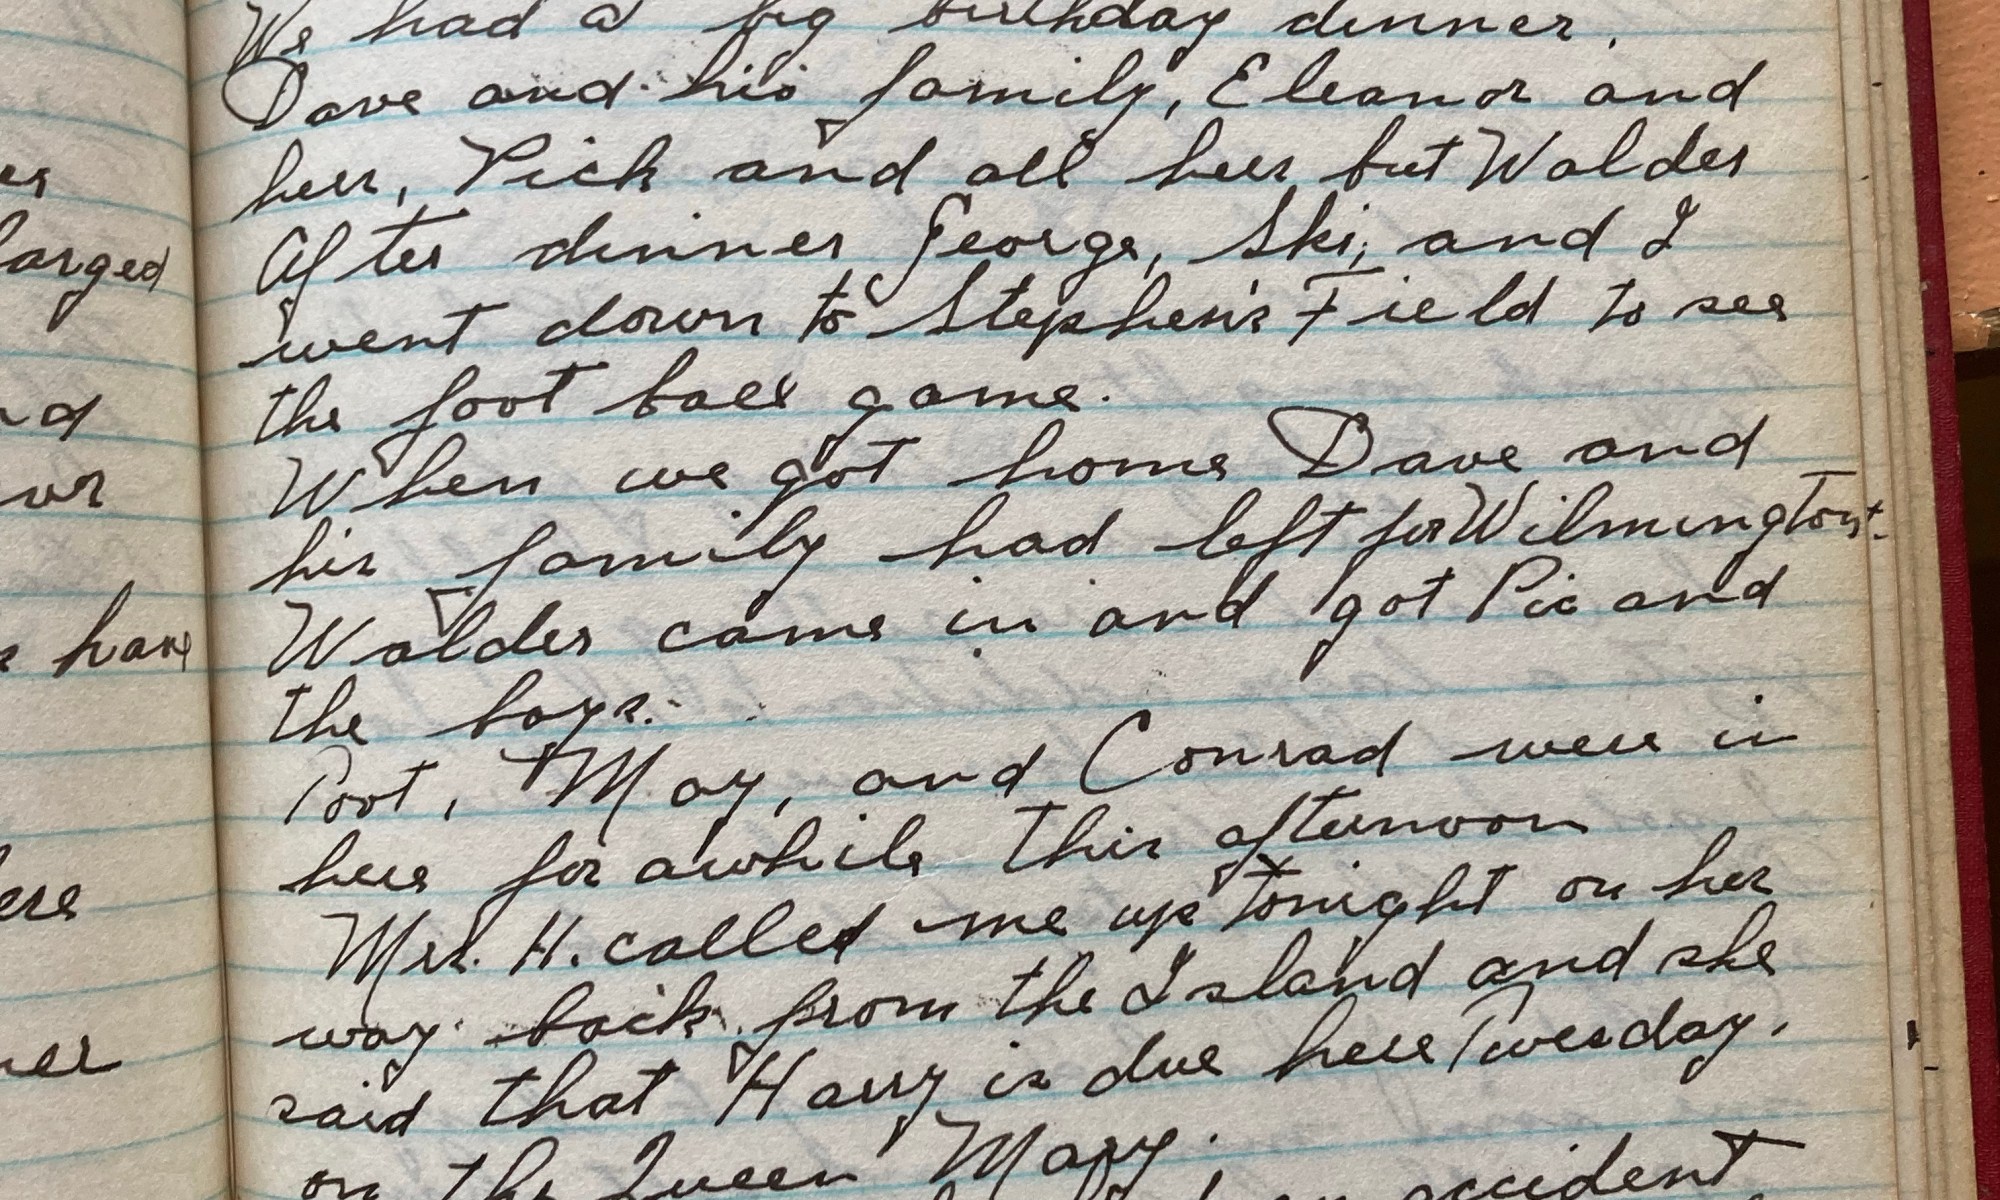 es
We had a big birthday dinner.
Dave and his family, Eleanor and
hers, Pick and all hers but Walder
larged
After dinner George, Ski, and I
went down to Stephen's Field to see
nd
the foot ball game.
or
When we got home Dave and
his family had left for Wilmington.
have
Walder came in and got Pic and
the boys.
Poot, May, and Conrad were in
ere
here for awhile this afternoon
Mrs. H. called me up tonight on her
way back from the Island and she
said that Harry is due here Tuesday.
on the Queen Mary.
accident